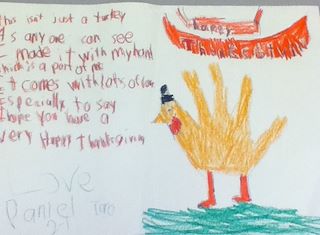 This isn't just a turkey
As any one can see
I made it with my hand
which is a part of me
It comes with lots of love
Especially to say
I hope you have a
very Happy Thanksgiving
Love
Daniel
Happy